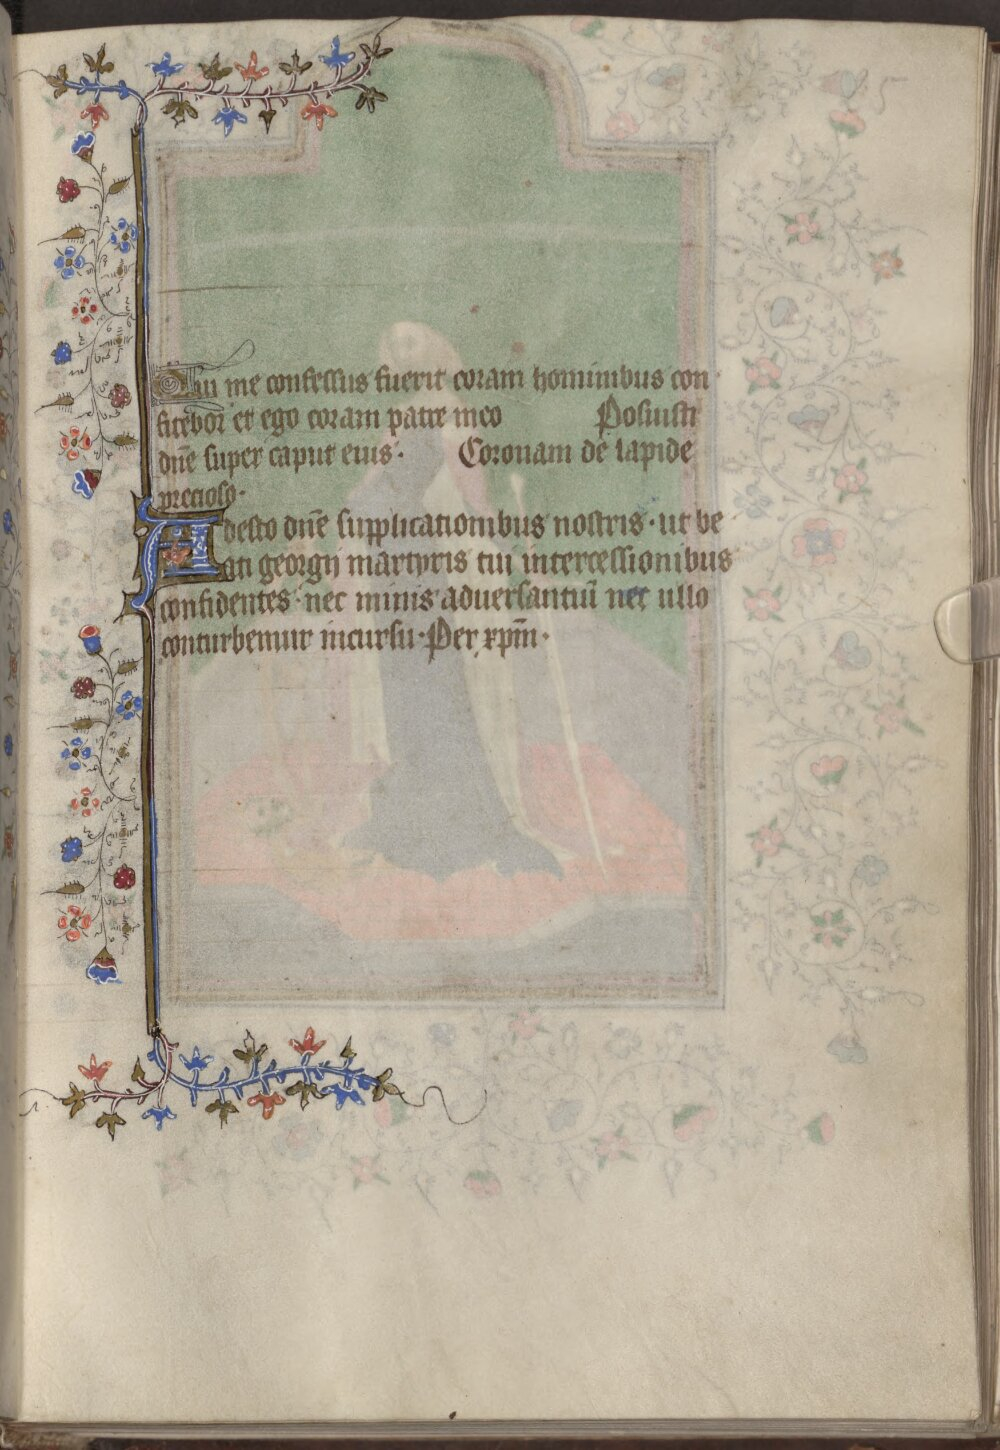 Qui me confessus fuerit coram hominibus con
fitebor et ego coram patre meo Posuisti
dñe super caput eius· Coronam de lapide
precioso·
Adesto dñe supplicationibus nostris· ut be
ati georgij martyris tui intercessionibus
confidentes· nec minis aduersantiũ nec ullo
conturbemur incursu· Per xpm̃·